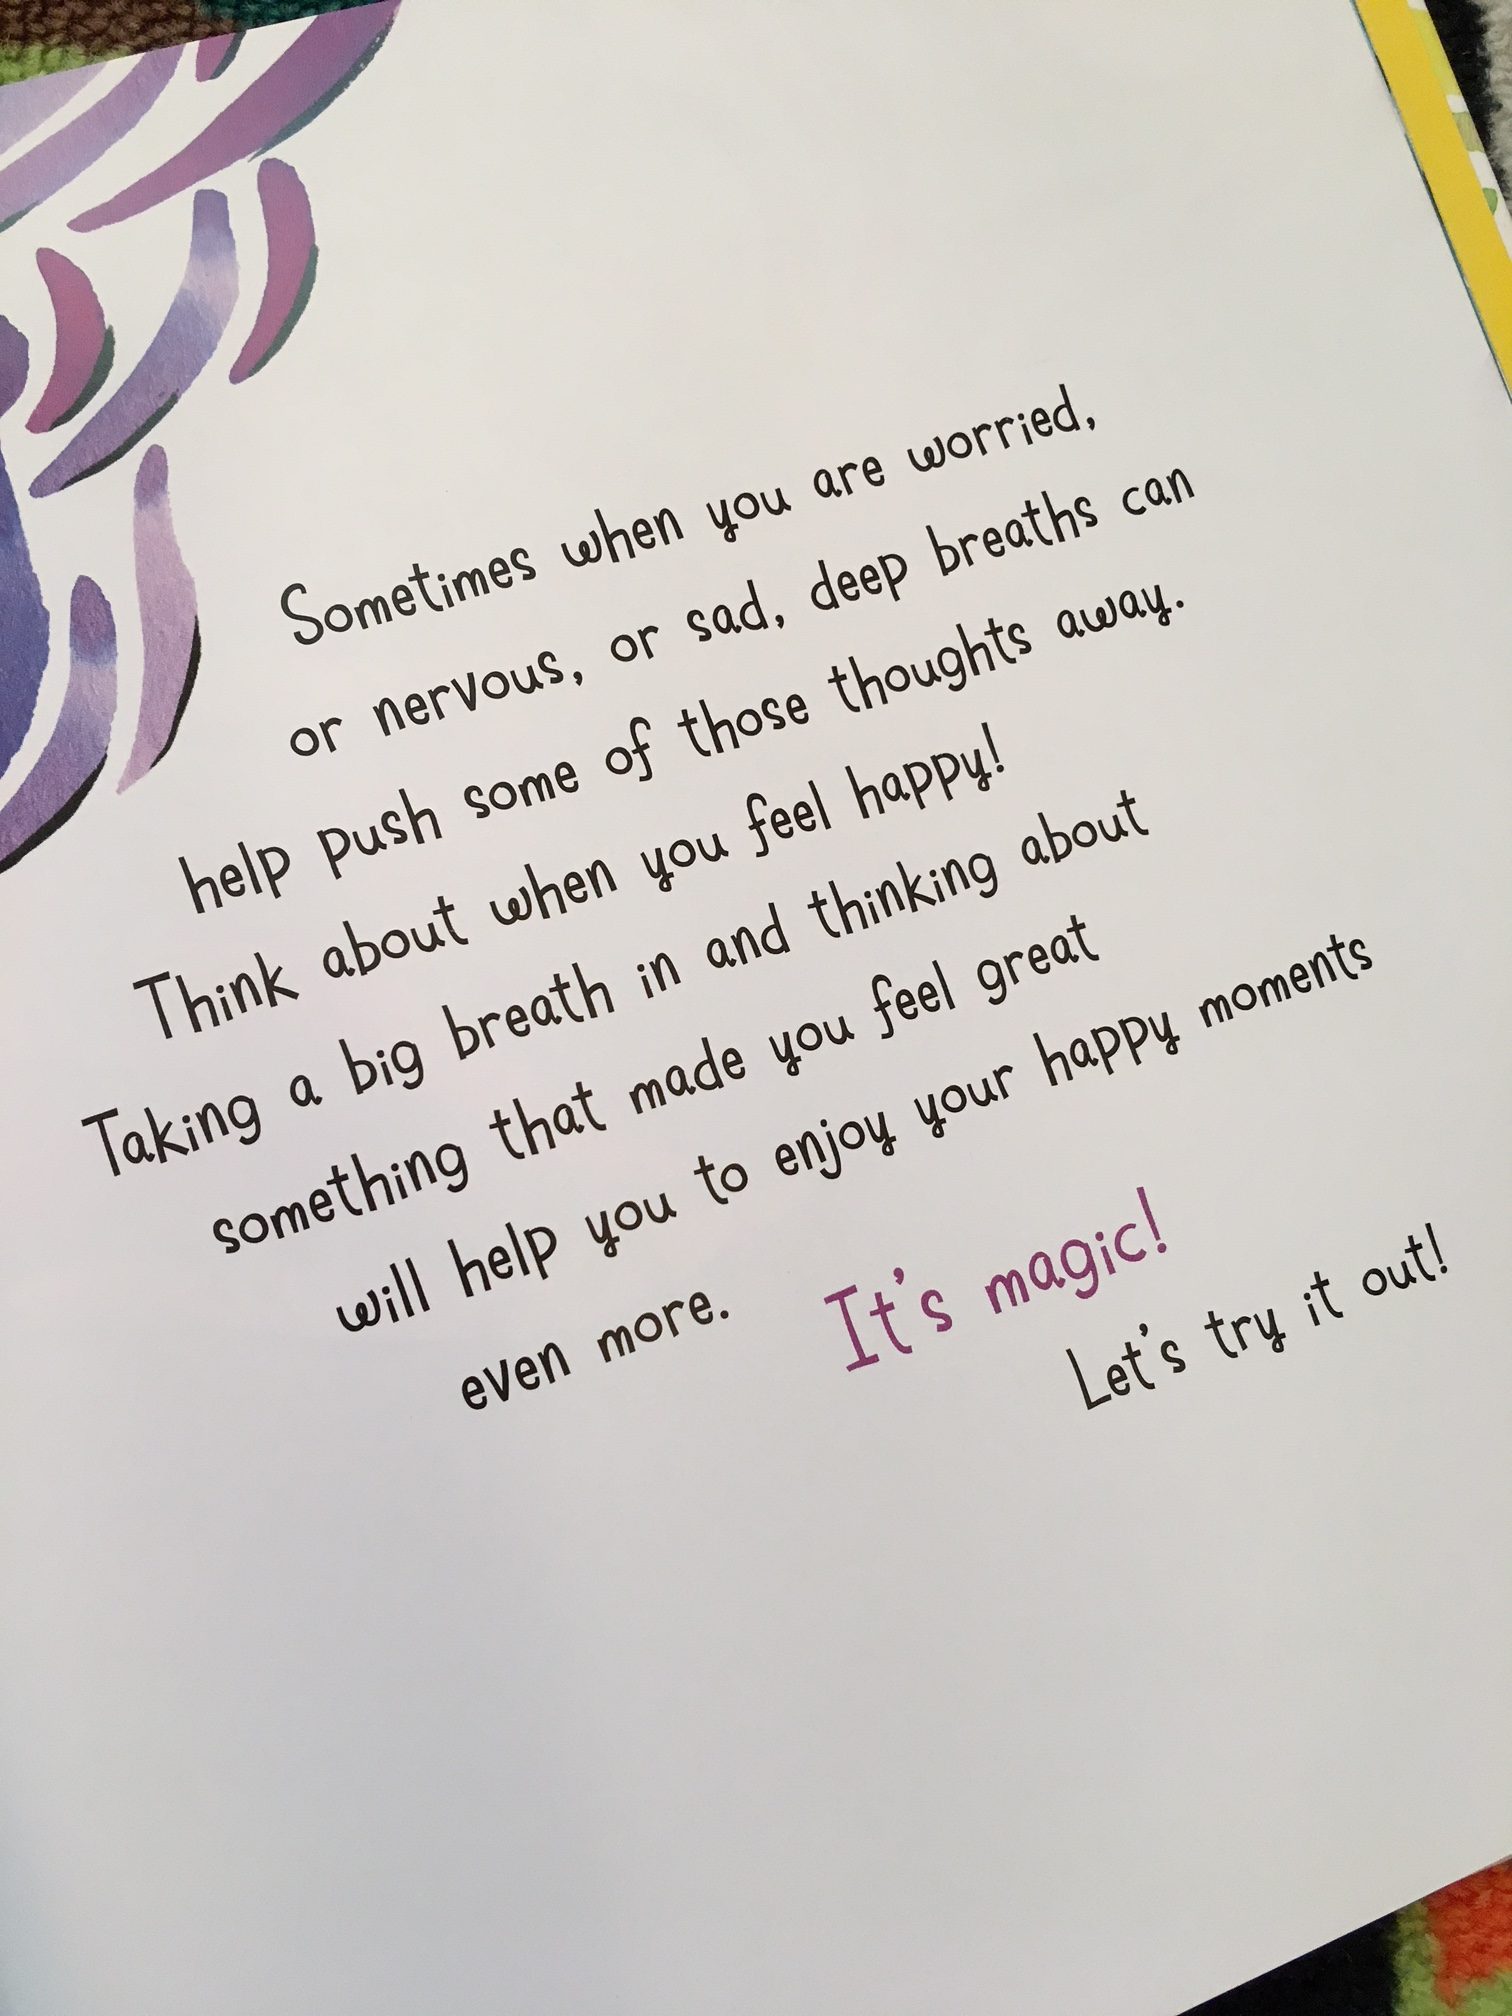 Sometimes when you are worried,
or nervous, or sad, deep breaths can
help push some of those thoughts away.
Think about when you feel happy!
Taking a big breath in and thinking about
something that made you feel great
will help you to enjoy your happy moments
even more. It's magic!
Let's try it out!